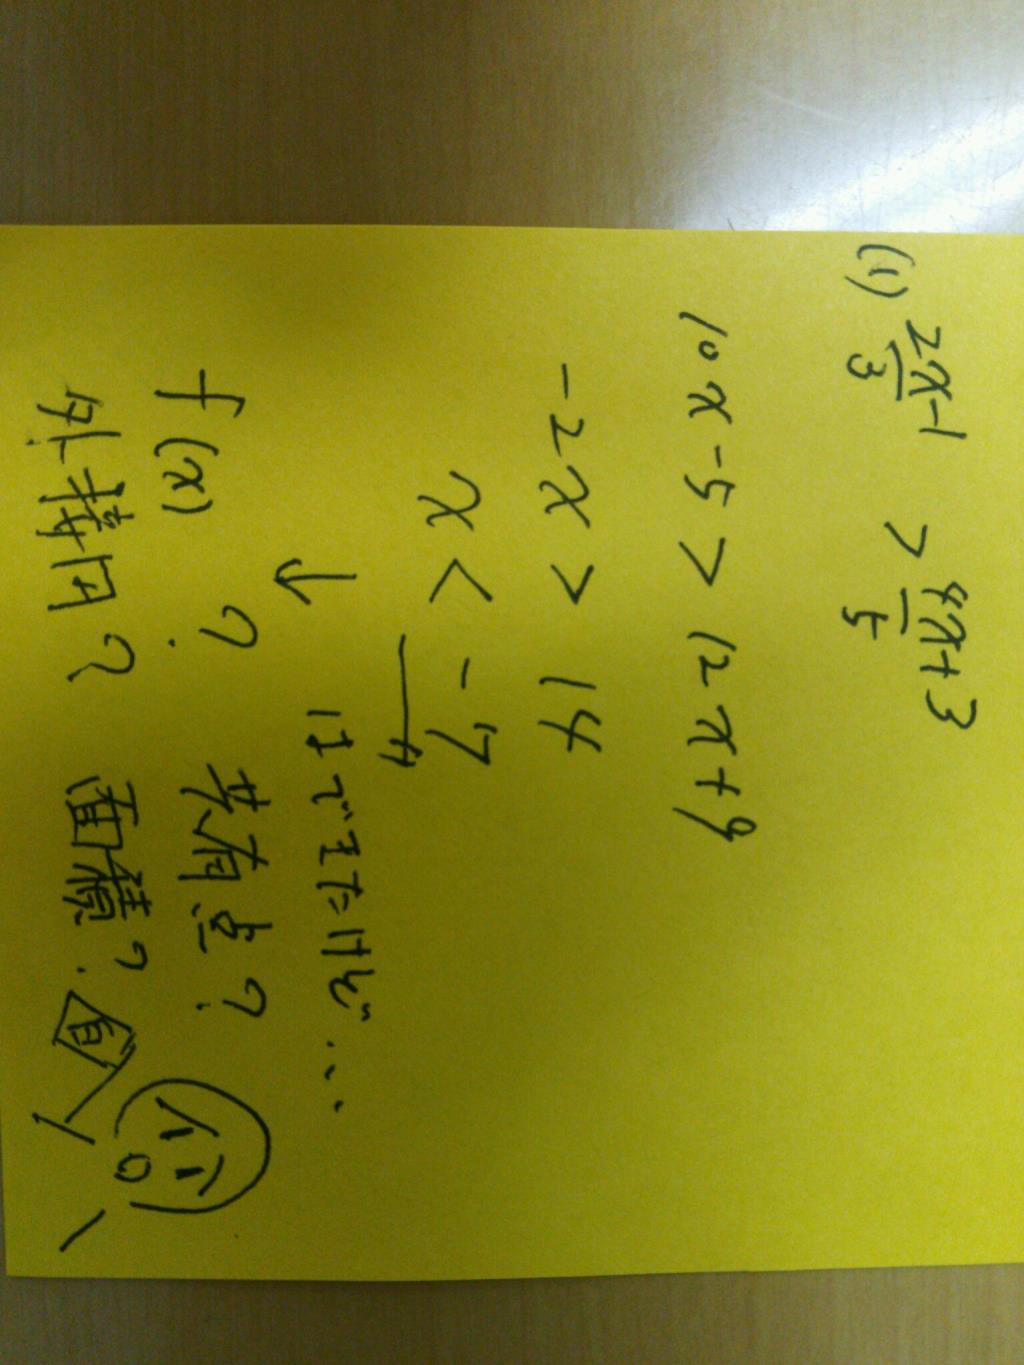 (1) 2x-1/3 < 4x+3/5
10x-5 < 12x+9
-2x < 14
x > -7
↑ はできたけど、、、
f(x)? 共有点?
外接円? 面積?